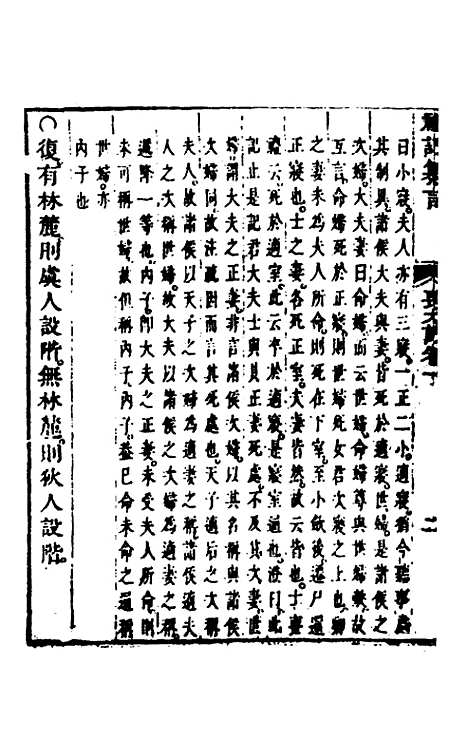 日小寢。夫人亦有三寢。一正二小。適寢。猶今聽事處
其制異。諸侯大夫與妻。皆死於適寢。世婦。是諸侯之
次婦。大夫妻曰命婦。而云世婦。命婦尊與世婦敵。故
互言。命婦死於正寢。世婦死女君次寢之上也。卿
之妻未爲夫人所命。則死在下室。至小斂後。遷尸還
正寢也。士之妻。各死正室。夫妻皆然。故云皆也。士喪
禮云。死於適室。此云死於適寢。是寢室通也。澄曰。此
記止是記君大夫士與其正妻死處。不及其次妻。世
婦謂大夫之正妻。非言諸侯次婦。以其名稱與諸侯
次婦同。故注疏因而言其死處也。天子適后之次稱
夫人。故諸侯以天子之次婦爲適妻之稱。諸侯適夫
人之次稱世婦。故大夫以諸侯之次婦爲適妻之稱。
遞降一等也。內子。卽大夫之正妻。未受夫人所命。則
未可稱世婦。故但稱內子。內子。蓋已命未命之通稱
世婦。亦
內子也
○復。有林麓。則虞人設階。無林麓。則狄人設階。
二